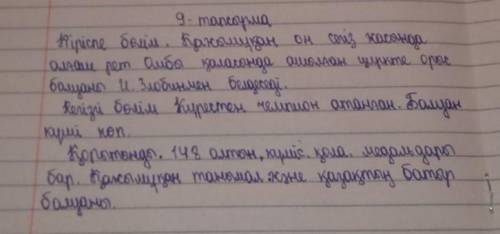 9-тапсырма
Кіріспе бөлім. Қажымұқан он сегіз жасында
алғаш рет Омбы қаласында ашылған циркте орыс
балуаны И. Злобинмен белдеседі.
Негізгі бөлім Күрестен чемпион атанған. Балуан
күші көп.
Қорытынды. 148 алтын, күміс. қола. медальдары
бар. Қажымұқан танымал және қазақтың батыр
балуаны.